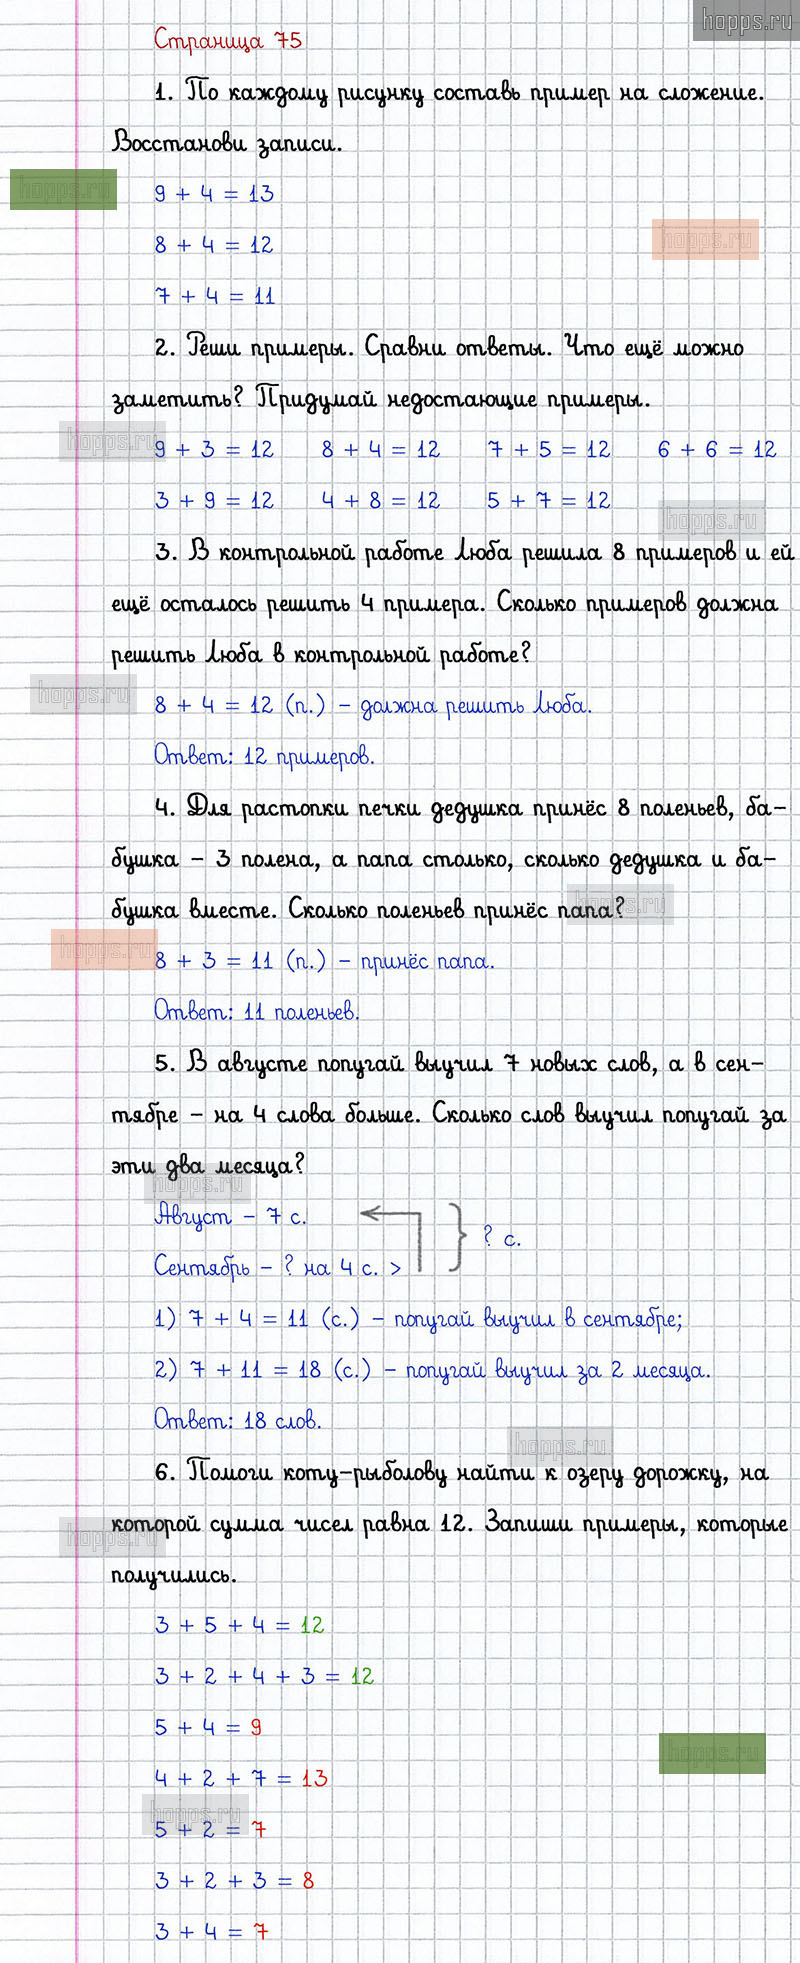 hopps.ru
Страница 75
1. По каждому рисунку составь пример на сложение.
Восстанови записи.
hopps.ru
9 + 4 = 13
hopps.ru
8 + 4 = 12
7 + 4 = 11
2. Реши примеры. Сравни ответы. Что ещё можно
заметить? Придумай недостающие примеры.
hopps.ru
9 + 3 = 12 8 + 4 = 12 7 + 5 = 12 6 + 6 = 12
3 + 9 = 12 4 + 8 = 12 5 + 7 = 12
hopps.ru
3. В контрольной работе Люба решила 8 примеров и ей
ещё осталось решить 4 примера. Сколько примеров должна
решить Люба в контрольной работе?
hopps.ru
8 + 4 = 12 (п.) – должна решить Люба.
Ответ: 12 примеров.
4. Для растопки печки дедушка принёс 8 поленьев, ба-
бушка – 3 полена, а папа столько, сколько дедушка и ба-
бушка вместе. Сколько поленьев принёс папа?
hopps.ru
hopps.ru
8 + 3 = 11 (п.) – принёс папа.
Ответ: 11 поленьев.
5. В августе попугай выучил 7 новых слов, а в сен-
тябре – на 4 слова больше. Сколько слов выучил попугай за
эти два месяца?
hopps.ru
Август – 7 с.
? с.
Сентябрь – ? на 4 с. >
1) 7 + 4 = 11 (с.) – попугай выучил в сентябре;
2) 7 + 11 = 18 (с.) – попугай выучил за 2 месяца.
Ответ: 18 слов.
hopps.ru
6. Помоги коту-рыболову найти к озеру дорожку, на
которой сумма чисел равна 12. Запиши примеры, которые
hopps.ru
получились.
3 + 5 + 4 = 12
3 + 2 + 4 + 3 = 12
5 + 4 = 9
hopps.ru
4 + 2 + 7 = 13
hopps.ru
5 + 2 = 7
3 + 2 + 3 = 8
3 + 4 = 7